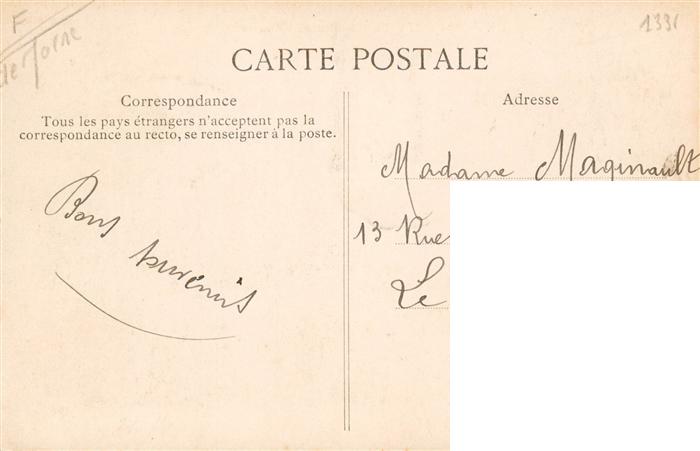 F
de Torne
1331
CARTE POSTALE
Correspondance
Tous les pays étrangers n'acceptent pas la
correspondance au recto, se renseigner à la poste.
Adresse
Madame Maginault
13 Rue
Le
Bons souvenirs